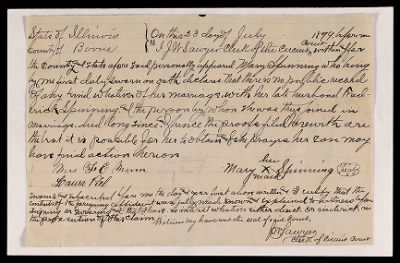 State of Illinois
County of Boone
On this 23 day of July 1879 before me
I J W Sawyer Clerk of the Circuit Court within & for
the County & State aforesaid personally appeared Mary Spinning who being
by me first duly sworn on oath declares that there is no public record
of any kind whatever of her marriage with her late husband
Spinning & the person by whom she was thus joined in
marriage died long since. Hence the proofs filed herewith are
the best it is possible for her to obtain & she prays her case may
have final action thereon
her
Mary X Spinning
mark
Mrs E
Laura
Sworn to & subscribed before me the day & year first above written & I certify that the
contents of the foregoing affidavit was fully made known & explained to witness before
signing or swearing & that I have no interest whatever either direct or indirect in
the prosecution of this claim. Witness my hand and the seal of said Court
J W Sawyer
Clerk of Circuit Court